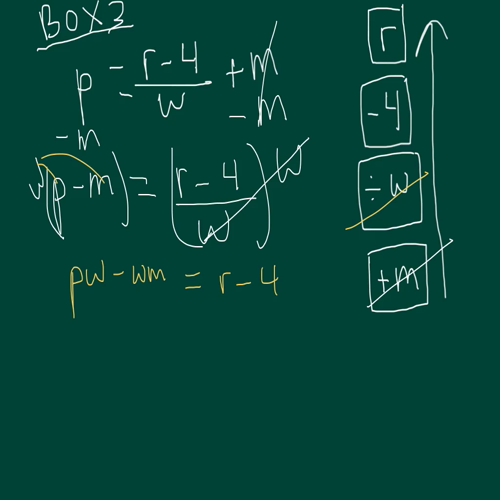 BOX 3
p = r - 4 / w + m
- m - m
w(p - m) = (r - 4 / w) w
pw - wm = r - 4
r
- 4
÷ w
+ m